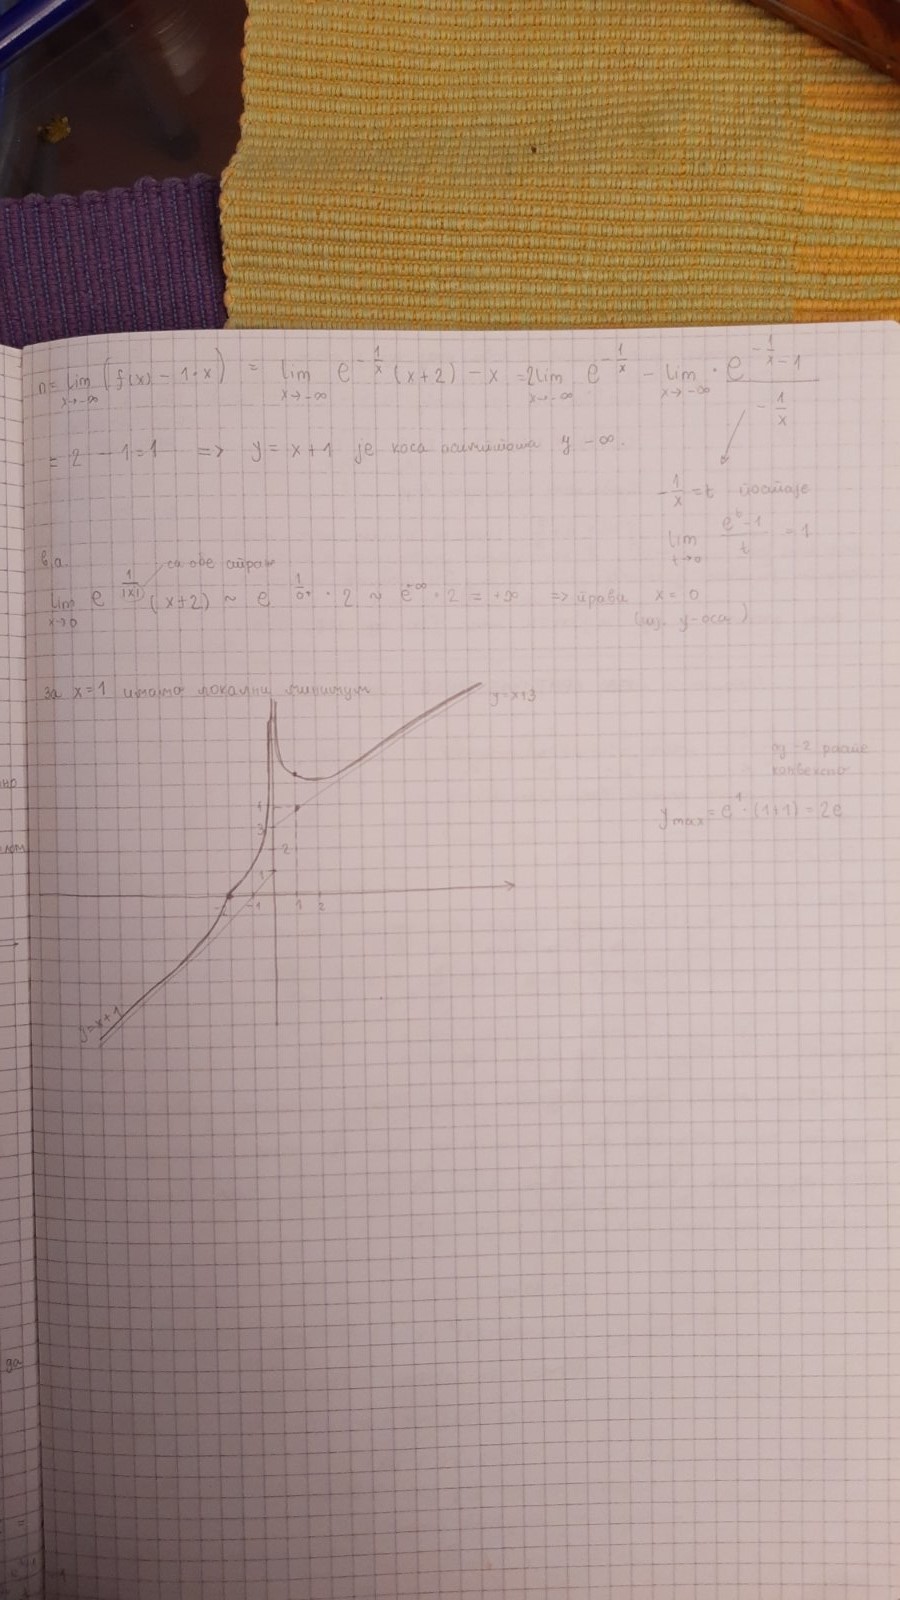 n = lim x→-∞ (f(x) - 1·x) = lim x→-∞ e^(-1/x) (x+2) - x = 2 lim x→-∞ e^(-1/x) - lim x→-∞ · (e^(-1/x) - 1)/(-1/x)
= 2 - 1 = 1 => y = x+1 је коса асимптота у -∞.
-1/x = t постаје
lim t→0 (e^t - 1)/t = 1
в.а.
са обе стране
lim x→0 e^(1/|x|) (x+2) ~ e^(1/0+) · 2 ~ e^(+∞) · 2 = +∞ => права x = 0
(тј. y-оса)
за x=1 имамо локални минимум
y=x+3
од -2 расте
конвексно
y max = e^1 · (1+1) = 2e
4
3
2
1
-2 -1 1 2
y=x+1